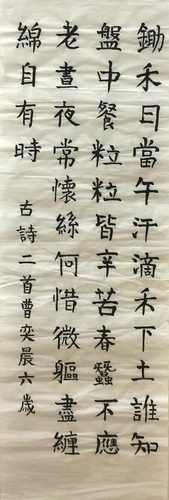 鋤禾日當午汗滴禾下土誰知
盤中餐粒粒皆辛苦春蠶不應
老晝夜常懷絲何惜微軀盡纏
綿自有時
古詩二首曹奕晨六歲